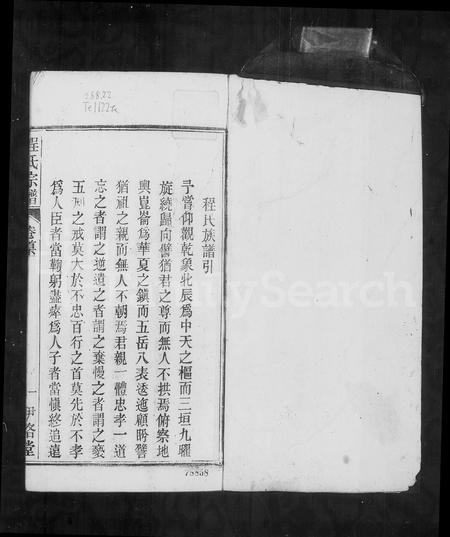 288.22
Te1122a
程氏族譜引
予嘗仰觀乾象北辰為中天之樞而三垣九曜
旋繞歸向譬猶君之尊而無人不拱焉俯察地
輿崑崙為華夏之鎮而五岳八表逶迤顧盼譬
猶祖之親而無人不朝焉君親一體忠孝一道
忘之者謂之逆遺之者謂之棄慢之者謂之褻
五刑之戒莫大於不忠百行之首莫先於不孝
為人臣者當鞠躬盡瘁為人子者當愼終追遠
程氏宗譜
一
伊洛堂
78868
FamilySearch